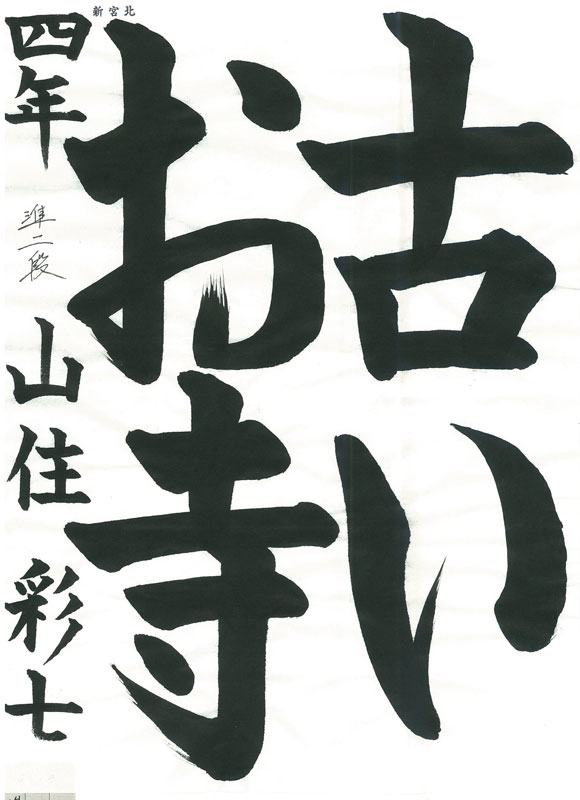 古い
お寺
新宮北
四年 準二段 山住 彩七